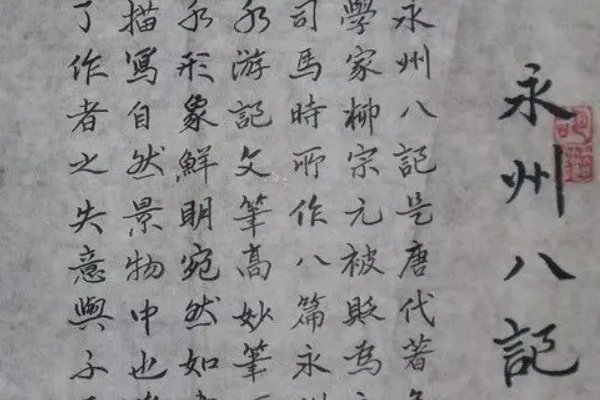 永州八記
永州八記是唐代著
學家柳宗元被貶為
司馬時所作八篇永
游記文筆高妙筆
形象鮮明宛然如
描寫自然景物中也
了作者之失意與